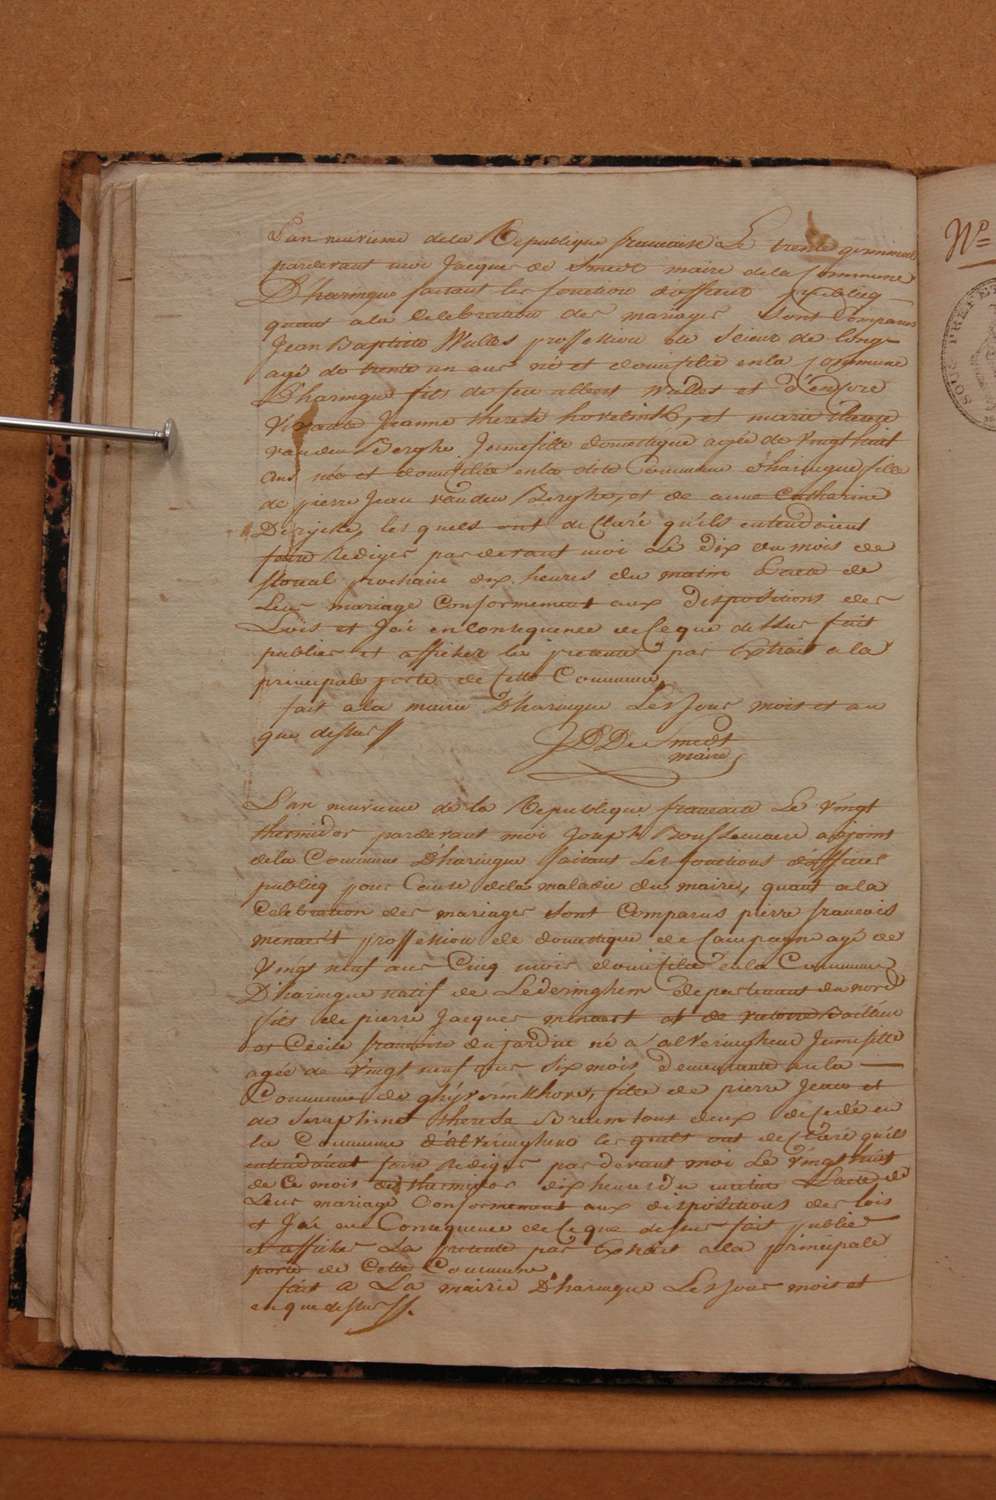 L'an neuvieme de la Republique francaise Le trente germinal
pardevant moi Jacques de Smedt maire de la Commune
D'haringue faitant les fonction d'officier publicq
quant a la Celebration des mariages Sont Comparus
Jean Baptiste Wullis proffession de Scieur de long
agé de trente un ans né et domicilié en la Commune
D'haringue fils de feu albert Wullis et d'encore
vivante Jeanne therese et marie
vanden Berghe Jeune fille domestique agée de vingt huit
ans née et domiciliée en la dite Commune d'haringue fille
de pierre Jean vanden Berghe, et de anne Catharine
Derycke, les quels ont declaré qu'ils entendoient
faire Rediger pardevant moi Le dix du mois de
floreal prochain dix heures du matin L'acte de
Leur mariage Conformement aux dispositions des
Lois et J'ai en Consequence de Ce que dessus fait
publier et afficher la presente par Extrait a la
principale porte de Cette Commune,
fait a la mairie D'haringue Les Jour mois et an
que dessus
J D De Smedt
maire
L'an neuvieme de la Republique francaise Le vingt
thermidor pardevant moi Joseph adjoint
de la Commune D'haringue faitant Les fonctions d'officier
publicq pour Cause de la maladie du maire, quant a la
Celebration des mariages Sont Comparus pierre francois
menaert proffession de domestique de Campagne agé de
vingt neuf ans Cinq mois domicilié en la Commune
D'haringue natif de Lederinghem departement du nord
fils de pierre Jacques menaert et de victoire
et Cecile francoise dujardin né a alveringhem Jeune fille
agée de vingt neuf ans Six mois, demeurante en la
Commune de ghyverinkhove, fille de pierre Jean et
de Seraphine therese tous deux decedé en
la Commune d'alveringhem les quels ont declaré qu'ils
entendoient faire Rediger pardevant moi Le vingt huit
de Ce mois de thermidor dix heures du matin L'acte de
Leur mariage Conformement aux dispositions des lois
et J'ai en Consequence de Ce que dessus fait publier
et afficher La presente par Extrait a la principale
porte de Cette Commune
fait a La mairie D'haringue Les Jour mois et
an que dessus
Nº=
SOUS PREFET